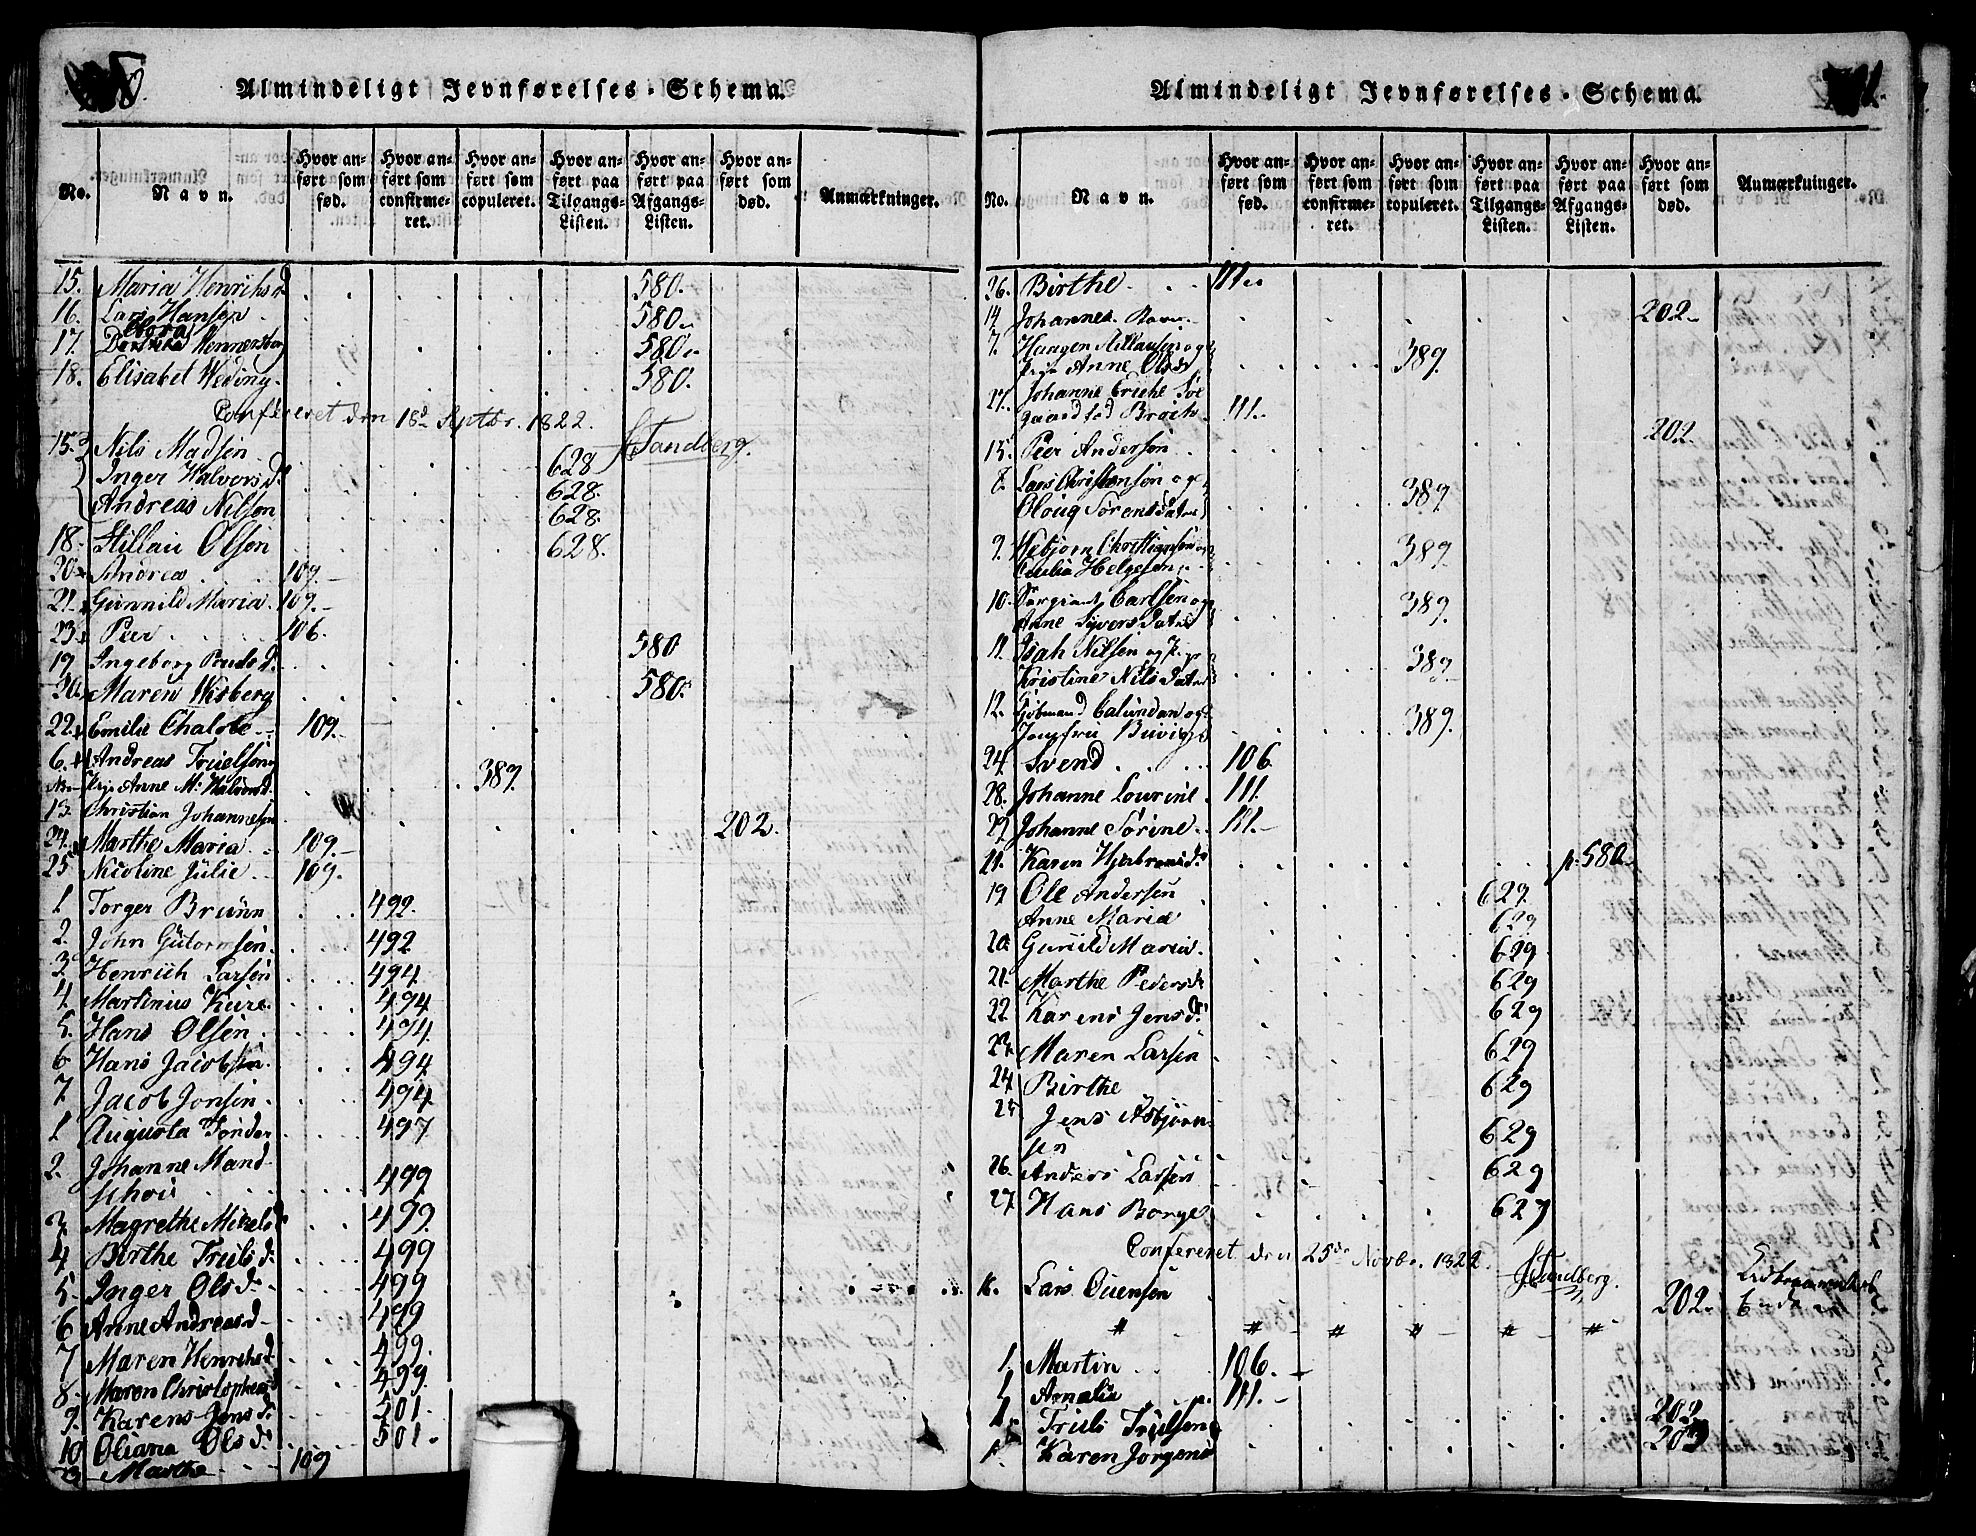 Almindeligt Jevnførelses-Schema.
No.
Navn.
Hvor anført som fød.
Hvor anført som confirmeret.
Hvor anført som copuleret.
Hvor anført paa Tilgangs-Listen.
Hvor anført paa Afgangs-Listen.
Hvor anført som død.
Anmærkninger.
15. Maria Henrichsd. 580.
16. Lars Hansen 580.
17. 580.
18. Elisabet Weding. 580.
Confereret den 18d Septbr. 1822. Sandberg.
15. Nils Madsen 628
Inger Halvorsd. 628.
Andreas Nilsen 628.
18. Stillau Olsen 628.
20. Andrea 109.
21. Gunnild Maria. 109.
23. Peer 106.
19. Ingeborg Pouls d. 580
20. Maren Wisberg 580.
22. Emilie 109.
6. Andreas Truelsen
Anne M. Halvorsd. 389.
13. Christian Johannesen 202.
24. Marthe Maria 109.
25 Nicoline Julie 109.
1. Torger Bruun 492.
2. John Gutormsen. 492.
3. Henrich Larsen 494.
4. Martinius Kure. 494
5. Hans Olsen. 494.
6. Hans Jacobsen. 494
7. Jacob Jonsen. 494
1. Augusta Tonder 497
2. Johanne Mand-
schou 499
3. Magrethe Mikelsd 499.
4. Birthe Truls d. 499
5. Inger Ols d. 499
6. Anne Andreasd 499
7 Maren Henrichsd. 499.
8. Maren Christophersd 499.
9. Karen Jens d. 501.
10 Oliana Ols d. 501.
23 Marthe 109
Almindeligt Jevnførelses-Schema.
No.
Navn.
Hvor anført som fød.
Hvor anført som confirmeret.
Hvor anført som copuleret.
Hvor anført paa Tilgangs-Listen.
Hvor anført paa Afgangs-Listen.
Hvor anført som død.
Anmærkninger.
26. Birthe 111.
14 Johannes 202.
7. Haagen og
Anne Olsd 389.
27. Johanne
Broch. 111.
15. Peer Andersen 202
8. Lars Christensen og
Oloug Sørensdatter 389.
9. Webjørn Christiansen og
Helgesen 389.
10. Sergiant Carlsen og
Anne Syvers Datter 389.
11. Isah Nilsen og
Kristine Nils Datter 389.
12. og
Jomfru 389.
24. Svend 106.
28. Johanne Lourine. 111.
29 Johanne Sørine. 111.
21. Karen p. 580.
19 Ole Andersen 629.
Anne Maria 629
20. Gunild Maria. 629
21. Marthe Pedersd 629
22. Karen Jens d. 629
23. Maren Larsen 629
24. Birthe 629
25 Jens Asbjørn-
sen 629
26. Anders Larsen 629
27. Hans Borge 629
Confereret den 25de Novbr. 1822 Sandberg.
16. Lars Ouensen 202.
1. Martin 106.
1. Amalia 111.
1. Truls Truelsen 202
1. Karen Jørgens 203